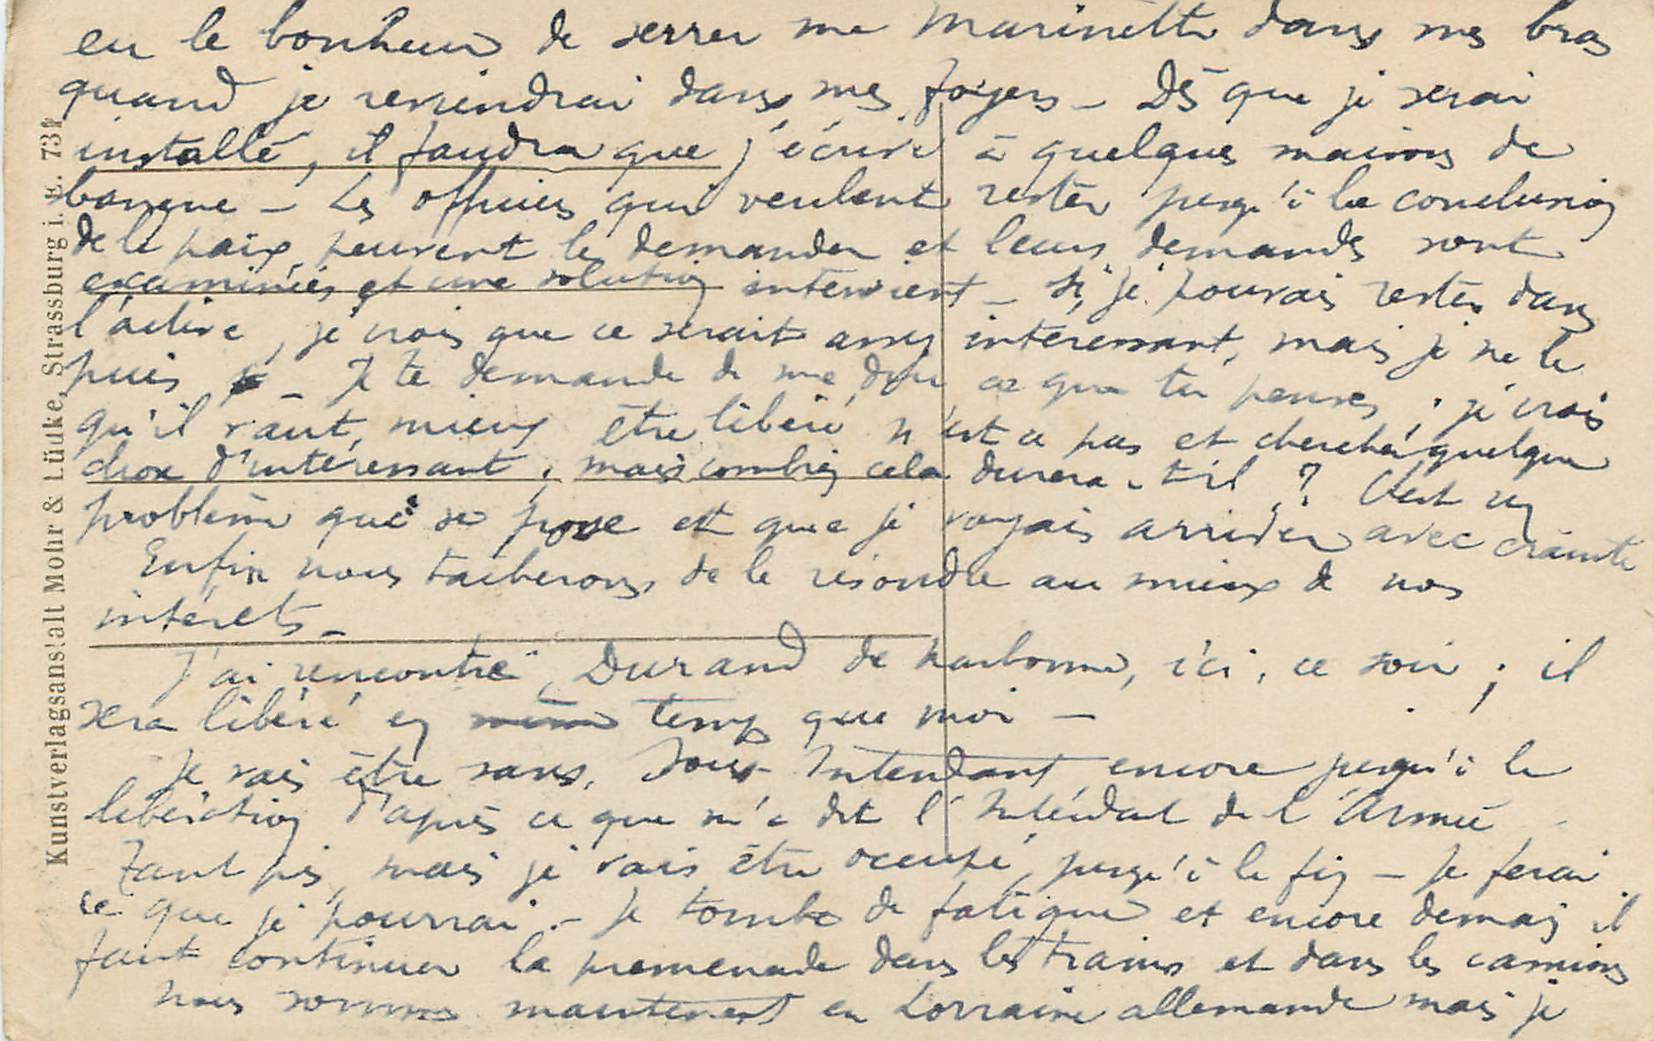 eu le bonheur de serrer ma Marinette dans mes bras
quand je reviendrai dans mes foyers – Dès que je serai
installé, il faudra que j'écrive à quelques maisons de
banque – Les officiers qui veulent rester jusqu'à la conclusion
de la paix, peuvent le demander et leurs demandes sont
examinées et une solution intervient – Si je pouvais rester dans
l'active, je crois que ce serait assez intéressant, mais je ne le
puis – Je te demande de me dire ce que tu penses ; je crois
qu'il vaut mieux être libéré n'est ce pas et chercher quelque
chose d'intéressant ; mais combien cela durera-t-il ? C'est un
problème qui se pose et que je voyais arriver avec crainte
Enfin nous tacherons de le résoudre au mieux de nos
intérêts –
J'ai rencontré Durand de Narbonne, ici, ce soir ; il
sera libéré en même temps que moi –
Je vais être sans Sous-Intendant encore jusqu'à la
libération d'après ce que m'a dit l'Intendant de l'Armée
Tant pis, mais je vais être occupé jusqu'à la fin – Je ferai
ce que je pourrai – Je tombe de fatigue et encore demain il
faut continuer la promenade dans les trains et dans les camions
Nous sommes maintenant en Lorraine allemande mais je
Kunstverlagsanstalt Mohr & Lüdke, Strassburg i. E. 731